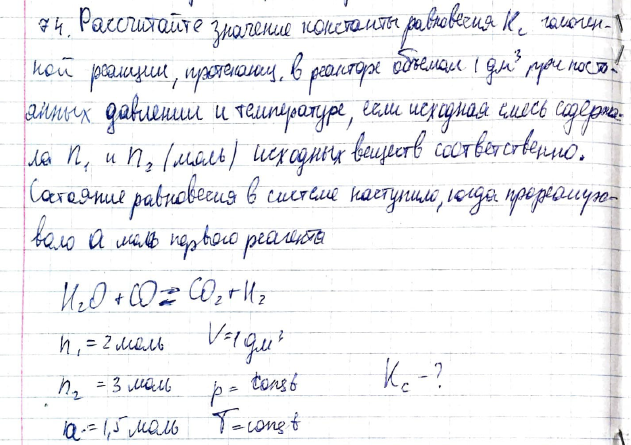 74. Рассчитайте значение константы равновесия Kc гомоген-
ной реакции, протекающ. в реакторе объемом 1 дм³ при посто-
янных давлении и температуре, если исходная смесь содержа-
ла n₁ и n₂ (моль) исходных веществ соответственно.
Состояние равновесия в системе наступило, когда прореагиро-
вало a моль первого реагента
H₂O + CO ⇄ CO₂ + H₂
n₁ = 2 моль V = 1 дм³
n₂ = 3 моль p = const Kc - ?
a = 1,5 моль T = const